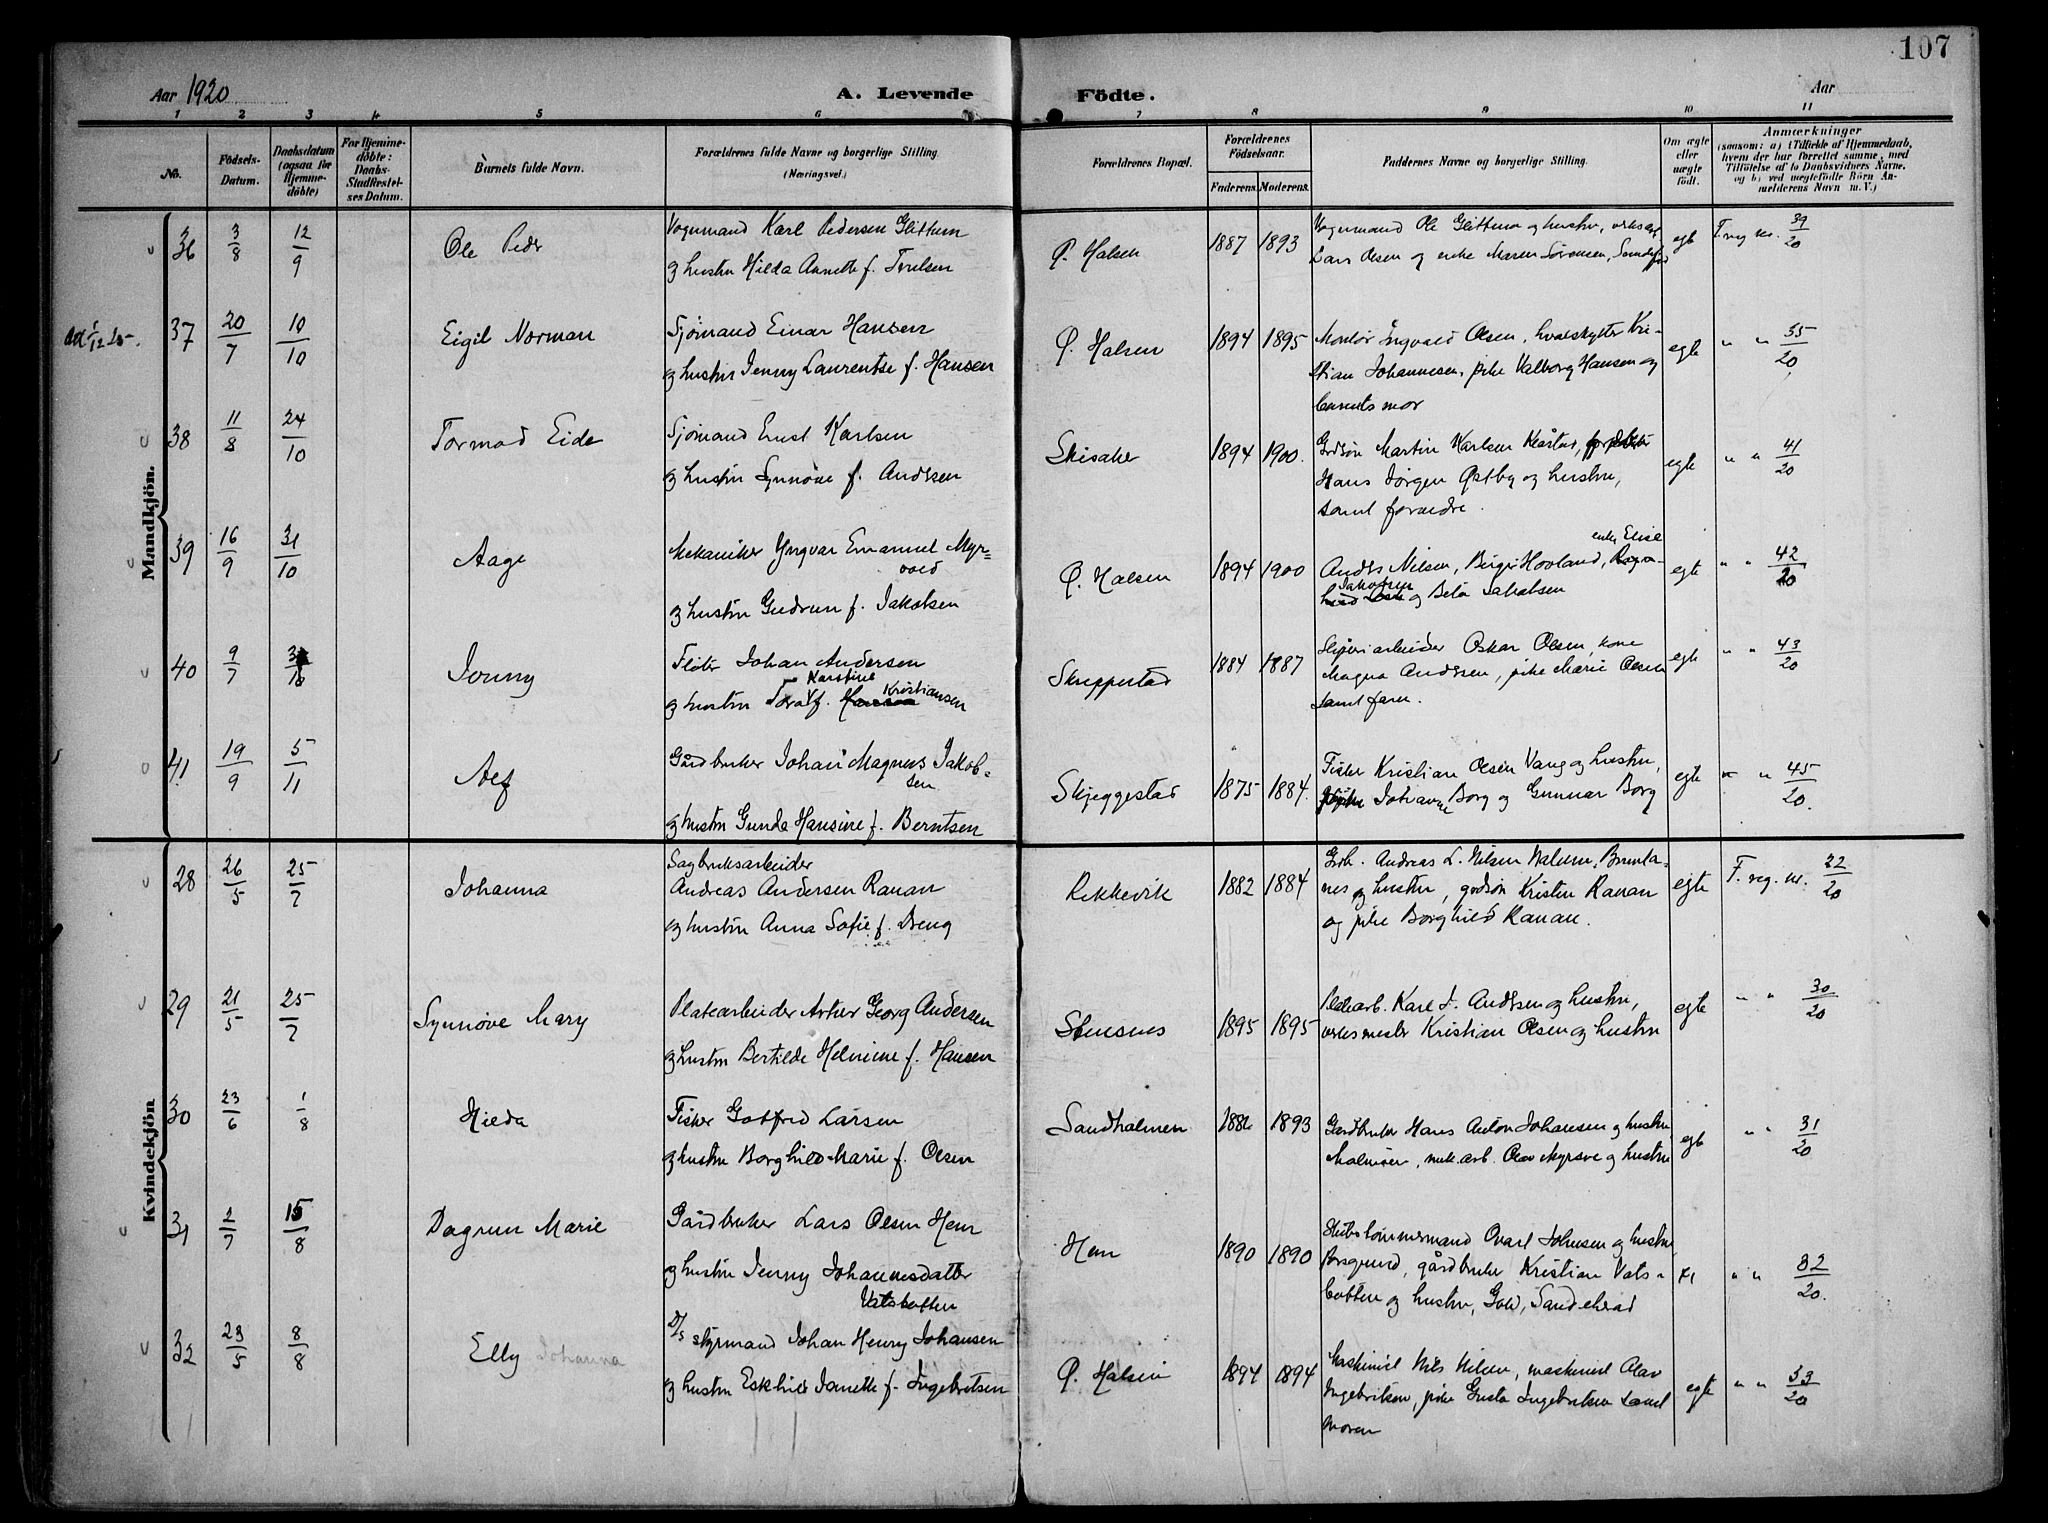 107
Aar 1920
A. Levende Födte.
Aar
1 2 3 4 5 6 7 8 9 10 11
No.
Födsels-Datum.
Daabsdatum (ogsaa för Hjemmedöbte)
For Hjemmedöbte: Daabs-Stadfestelses Datum.
Barnets fulde Navn.
Forældrenes fulde Navne og borgerlige Stilling (Næringsvei.)
Forældrenes Bopæl.
Forældrenes Födselsaar.
Faderens. Moderens.
Faddernes Navne og borgerlige Stilling.
Om ægte eller uægte födt.
Anmærkninger
(saasom: a) i Tilfælde af Hjemmedaab, hvem der har forrettet samme, med Tilföielse af to Daabsvidners Navne, og b) ved uægtefödte Börn Anmelderens Navn m. V.)
Mandkjön.
36 3/8 12/9 Ole Peder Vognmand Karl Pedersen Glittum
og hustru Hilda Annette f.
Ø. Halsen 1887 1893 Vognmand Ole Glittum og hustru,
Lars Olsen og enke Maren Sørensen, egte F. reg. nr. 39/20
37 20/7 10/10 Eigil Norman Sjømand Einar Hansen
og hustru Jenny Laurentse f. Hansen
Ø. Halsen 1894 1895 Montør Ingvald Olsen, hvalskytter Kri-
stian Johannesen, pike Valborg Hansen og
barnets mor egte " " 35/20
38 11/8 24/10 Tormod Eide Sjømand Ernst Karlsen
og hustru Synnøve f. Andersen
Skisaker 1894 1900. Grdsøn Martin Karlsen
Hans Jørgen Østby og hustru,
samt forældre. egte " " 41/20
39 16/9 31/10 Aage Mekaniker Yngvar Emanuel Myr=
vold
og hustru Gudrun f. Jakobsen
Ø. Halsen 1894 1900 enke Elise
Anders Nilsen, Birger Hovland,
Jakobsen og Jakobsen egte " " 42/20
40 9/7 Jonny Fløter Johan Andersen
Karstine Kristiansen
og hustru f.
Skreppestad 1884 1887 Sliperiarbeider Oskar Olsen, kone
Magna Andersen, pike Marie Olsen
samt faren. egte " " 43/20
41 19/9 5/11 Alf Gårdbruker Johan Magnus Jakob-
sen
og hustru Gunda Hansine f. Berntsen
Skjeggestad 1875 1884. Fisker Kristian Olsen Vang og hustru,
Johanne Borg og Gunnar Borg egte " " 45/20.
Kvindekjön
28 26/5 25/7 Johanna Sagbruksarbeider
Andreas Andersen Ranan
og hustru Anna Sofie f. Breng
Rekkevik 1882 1884 Grdb. Andreas L. Nilsen Nalum, Brunla-
nes og hustru, grdsøn Kristen Ranan
og pike Borghild Ranan. egte F. reg. nr. 22/20
29 21/5 25/7 Synnøve Mary Platearbeider Artur Georg Andersen
og hustru Bertilde Helmine f. Hansen
Stensnes 1895 1895 Platearb. Karl J. Andersen og hustru,
verksmester Kristian Olsen og hustru egte " " 30/20
30 23/6 1/8 Hilda Fisker Gotfred Larsen
og hustru Borghild Marie f. Olsen
Sandholmen 1886 1893 Gårdbruker Hans Anton Johansen og hustru
Malmøen, mek. arb. Olav Myrsve og hustru egte " " 31/20
31 2/7 15/8 Dagrun Marie Gårdbruker Lars Olsen Hem
og hustru Jenny Johannesdatter
Vatsbotten
Hem 1890 1890 Skibstømmermand Johnsen og hustru
Porsgrund, gårdbruker Kristian Vats-
botten og hustru, Sandeherad " " 32/20.
32 23/5 8/8 Elly Johanna D/s styrmand Johan Henry Johansen
og hustru Eskhild Janette f. Ingebretsen
Ø. Halsen 1894 1894 Maskinist Nils Nilsen, maskinist Olav
Ingebretsen, pike Gusta Ingebretsen samt
moren egte " " 33/20